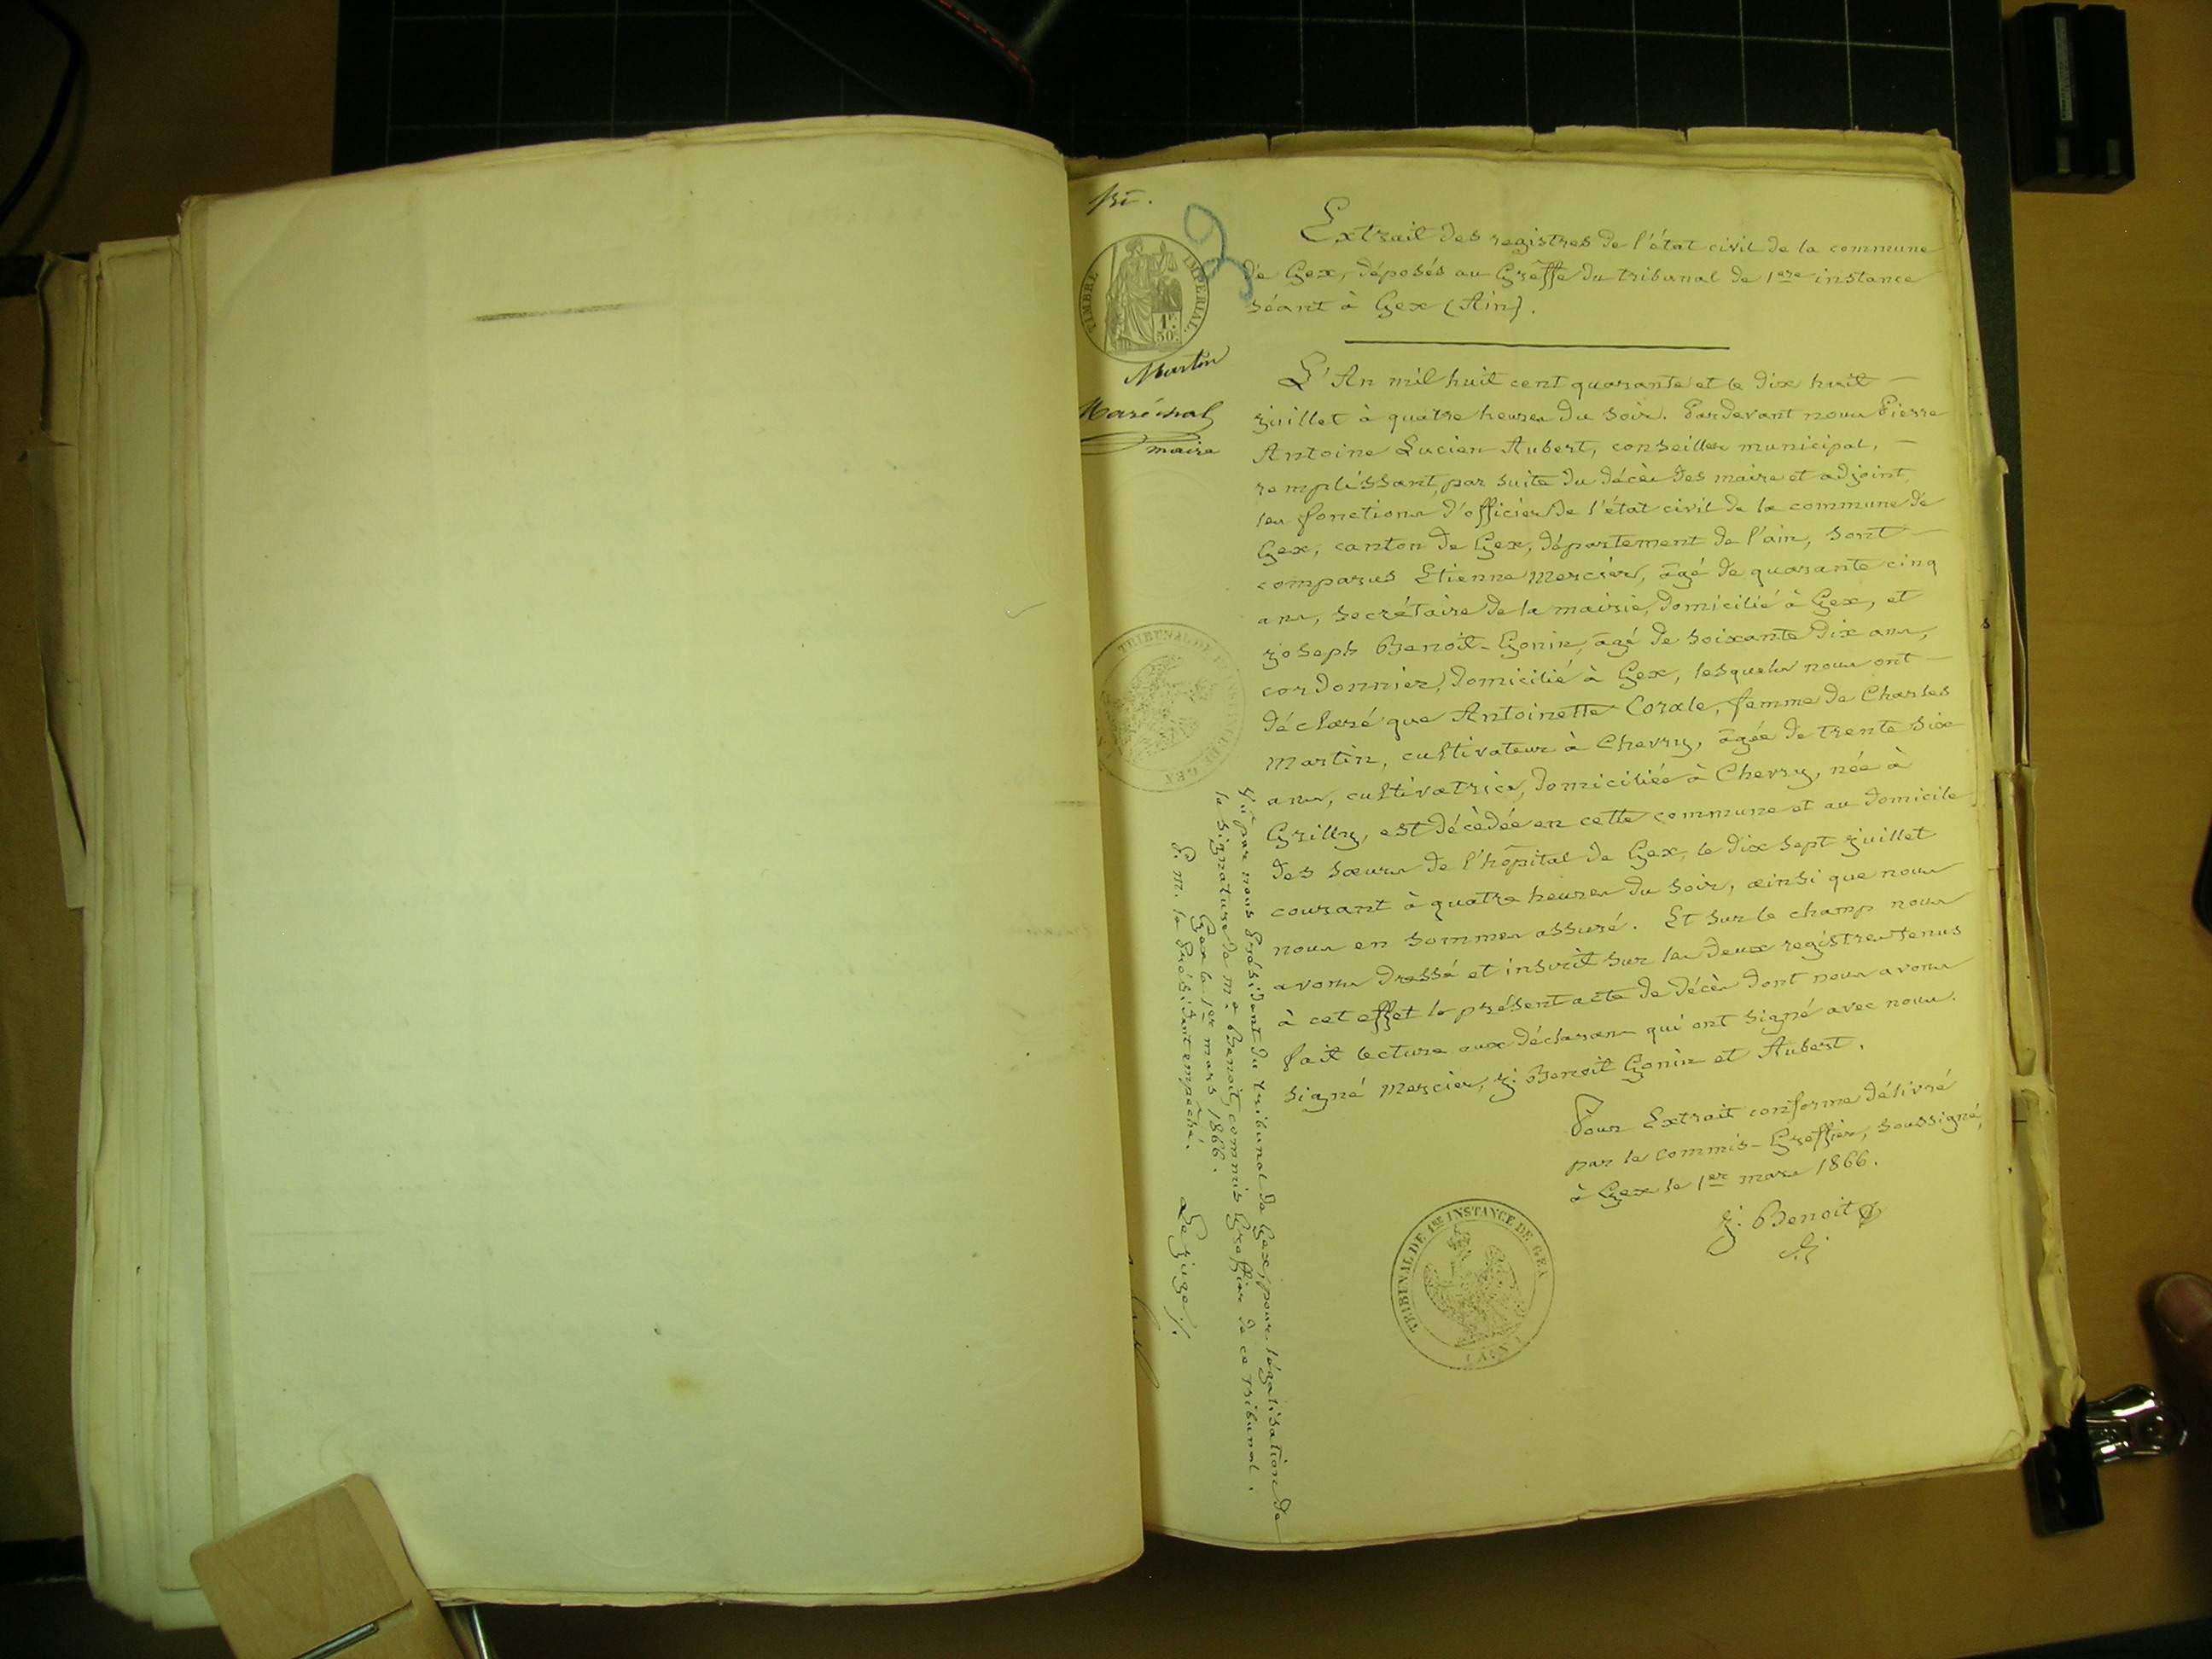 Extrait des registres de l'état civil de la commune
de Gex, déposés au Grêffe du tribunal de 1ere instance
séant à Gex (Ain).
TIMBRE IMPERIAL.
1F.
50c.
Martin
Maréchal
maire
L'An mil huit cent quarante et le dix huit —
juillet à quatre heures du soir. Pardevant nous Pierre
Antoine Lucien Aubert, conseiller municipal, —
remplissant, par suite du décès des maire et adjoint,
les fonctions d'officier de l'état civil de la commune de
Gex, canton de Gex, département de l'ain, sont —
comparus Etienne Mercier, âgé de quarante cinq
ans, secrétaire de la mairie, domicilié à Gex, et
joseph Benoit-Gonin, âgé de soixante dix ans,
cordonnier, domicilié à Gex, lesquels nous ont —
déclaré que Antoinette Corale, femme de Charles
Martin, cultivateur à Chevry, âgée de trente six
ans, cultivatrice, domiciliée à Chevry, née à
Grilly, est décèdée en cette commune et au domicile
des sœurs de l'hôpital de Gex, le dix sept juillet
courant à quatre heures du soir, ainsi que nous
nous en sommes assuré. Et sur le champ nous
avons dressé et inscrit sur les deux registres tenus
à cet effet le présent acte de décès dont nous avons
fait lecture aux déclarans qui ont signé avec nous.
signé Mercier, j. Benoit Gonin et Aubert.
Pour Extrait conforme délivré
par le commis-Greffier, soussigné,
à Gex le 1er mars 1866.
j. Benoit
TRIBUNAL DE 1RE INSTANCE DE GEX
(AIN)
TRIBUNAL DE INSTANCE DE GEX
Vu par nous Président du tribunal de Gex, pour légalisation de
la signature de Me Benoit, commis Greffier de ce tribunal.
Gex le 1er mars 1866.
P. M. le Président empêché.
Le juge